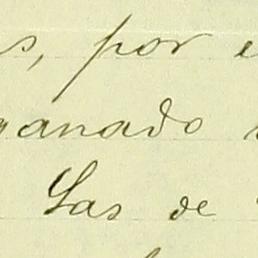 s, por e
ganado
Las de